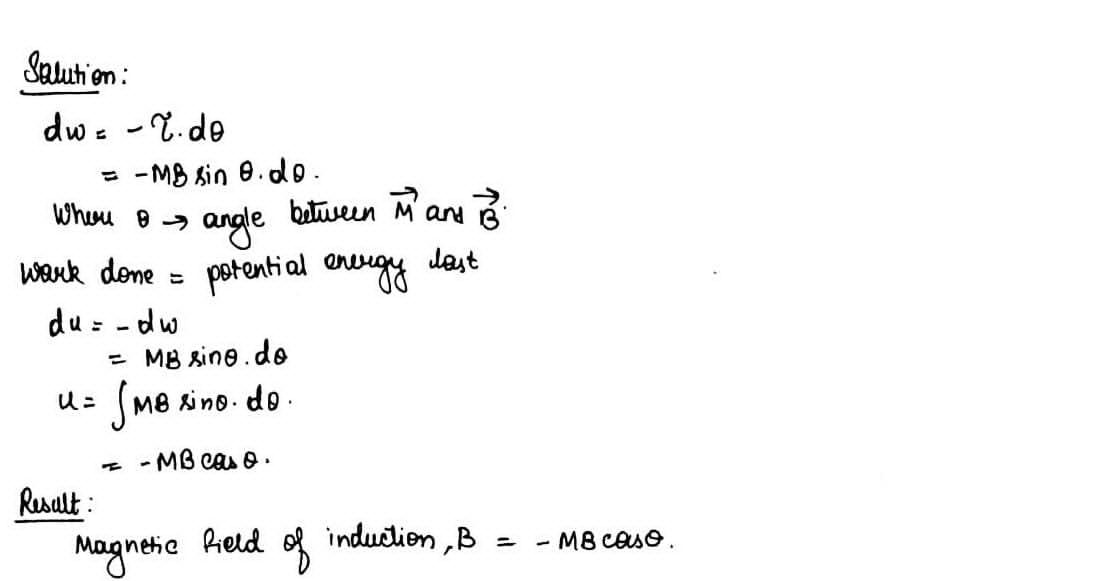 Solution:
dw = - τ.dθ
= -MB sin θ.dθ.
Where θ → angle between M⃗ and B⃗.
work done = potential energy lost
du = - dw
= MB sinθ.dθ
u = ∫MB sinθ.dθ.
= -MB cos θ.
Result:
Magnetic field of induction, B = - MB cosθ.